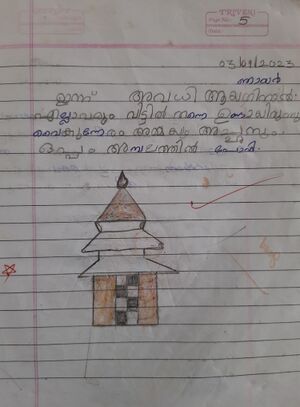 TRIVENI
Page No.: 5
Date:
03/09/2023
ഞായർ
ഇന്ന് അവധി ആയിരുന്നു.
എല്ലാവരും വീട്ടിൽ തന്നെ ഉണ്ടായിരുന്നു
വൈകുന്നേരം അമ്മക്കും അച്ഛനും
ഒപ്പം അമ്പലത്തിൽ പോയി.